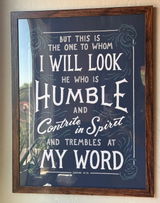 BUT THIS IS
THE ONE TO WHOM
I WILL LOOK
HE WHO IS
HUMBLE
AND
Contrite in Spirit
AND TREMBLES AT
MY WORD